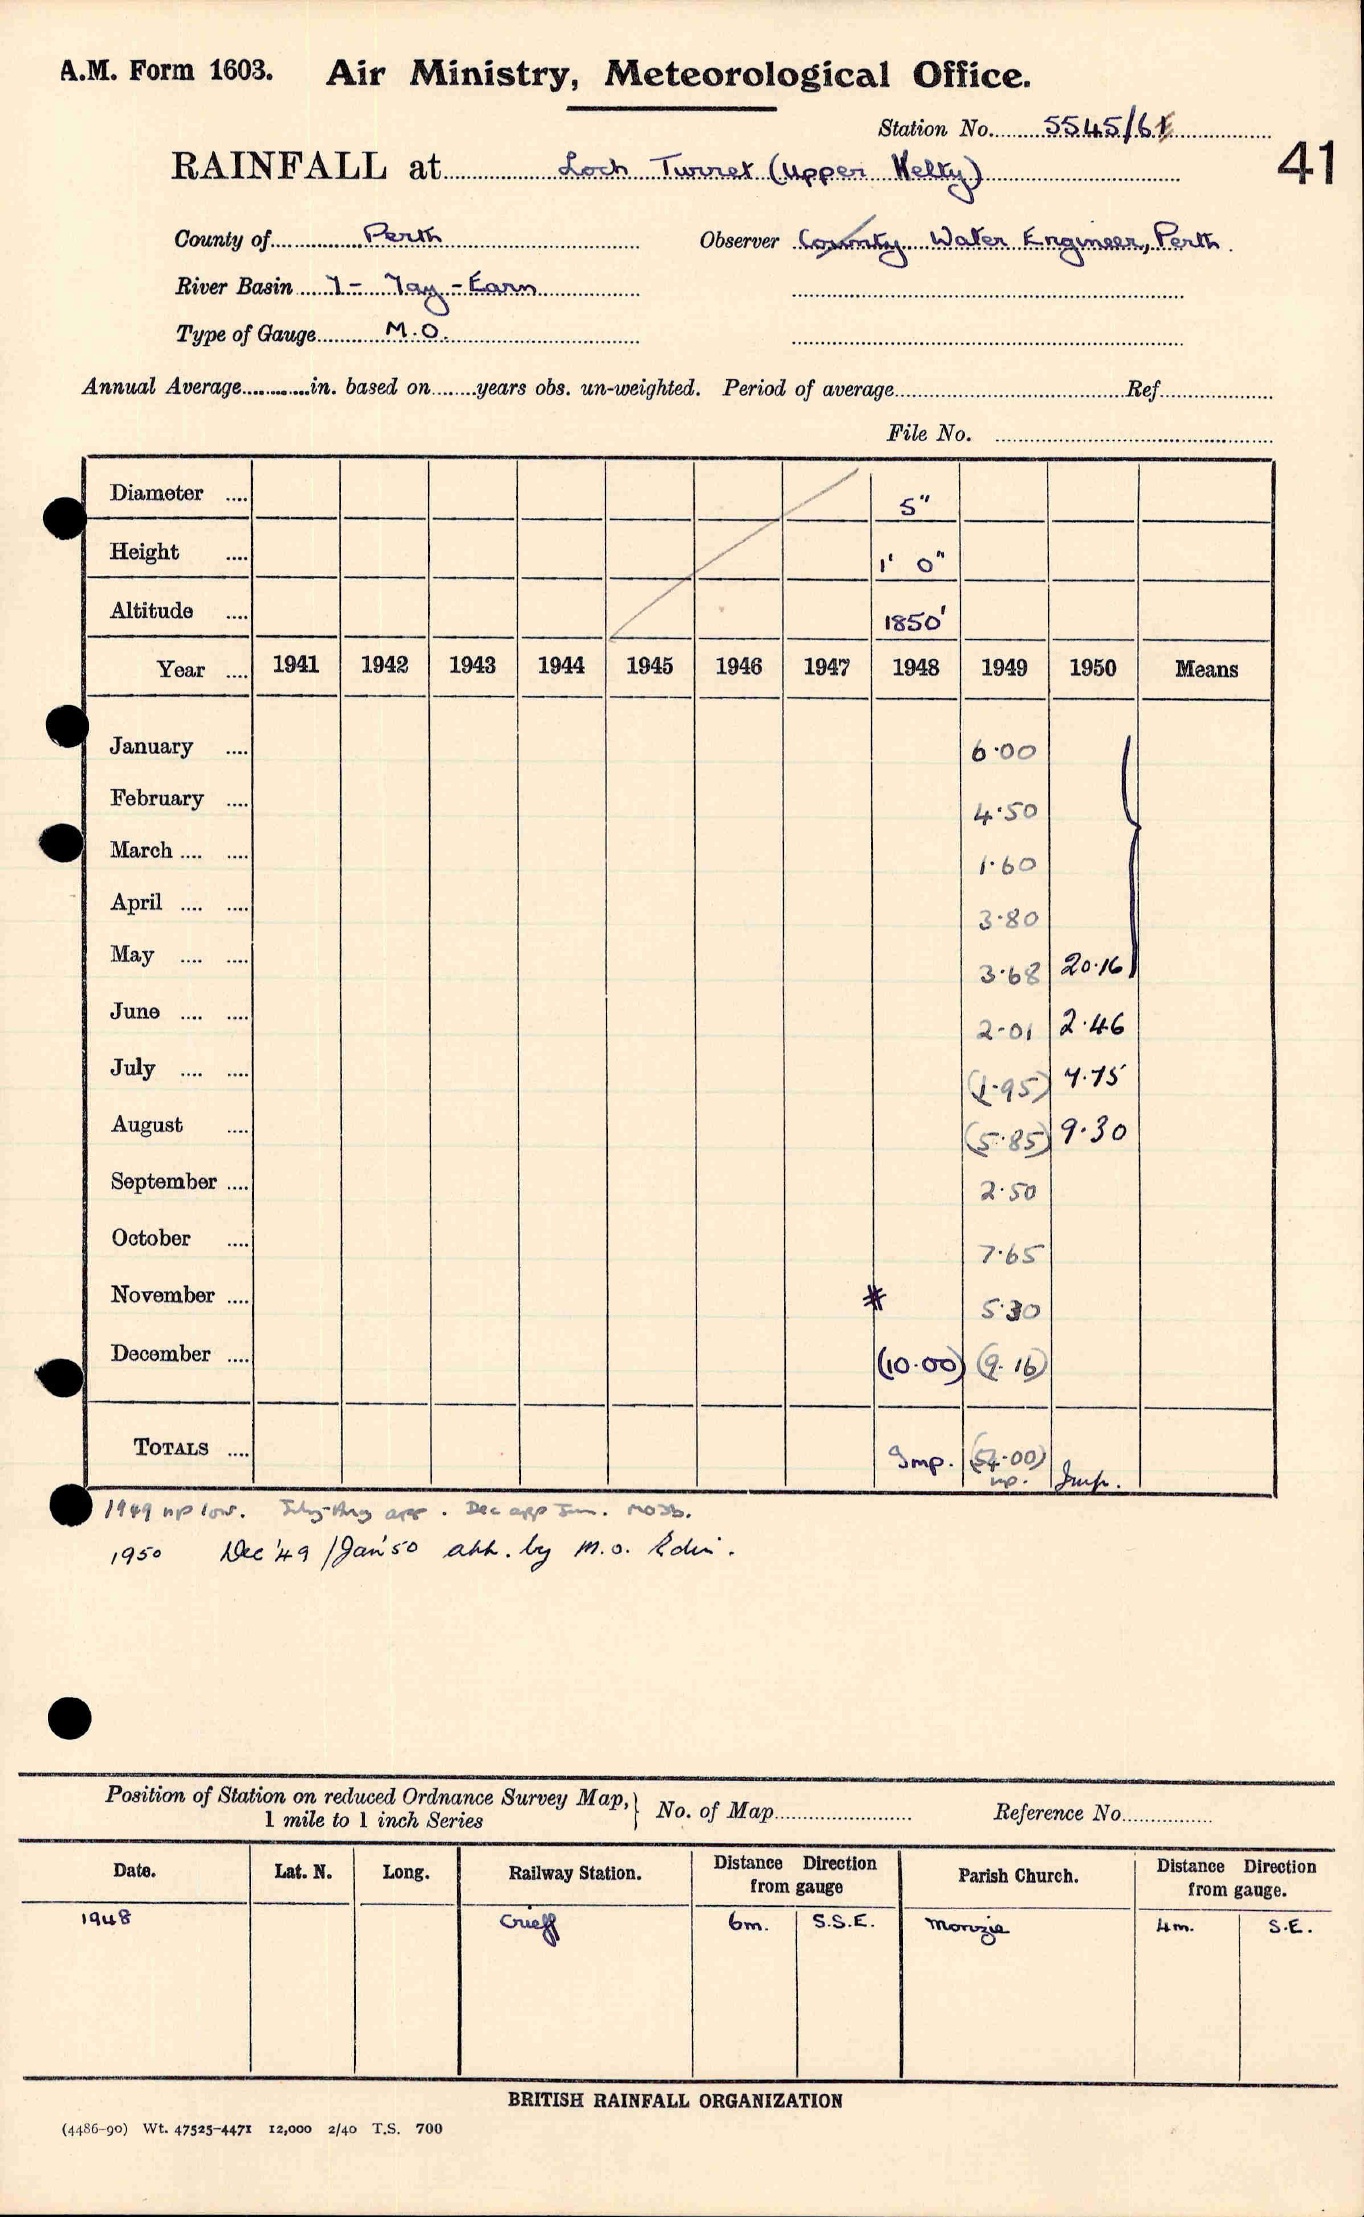 A.M. Form 1603. Air Ministry, Meteorological Office.
Station No. 5545/6
41
RAINFALL at Loch Turret (Upper Kelty)
County of Perth Observer County Water Engineer, Perth.
River Basin 7 - Tay - Earn
Type of Gauge M.O.
Annual Average in. based on years obs. un-weighted. Period of average Ref.
File No.
Diameter 5"
Height 1' 0"
Altitude 1850'
Year 1941 1942 1943 1944 1945 1946 1947 1948 1949 1950 Means
January 6.00
February 4.50
March 1.60
April 3.80
May 3.68 20.16
June 2.01 2.46
July (1.95) 7.75
August (5.85) 9.30
September 2.50
October 7.65
November # 5.30
December (10.00) (9.16)
TOTALS Imp. (54.00) Imp.
np.
1949 np low. July-Aug app. Dec app Jan.
1950 Dec '49 / Jan '50 by M.O. Edin.
Position of Station on reduced Ordnance Survey Map, } No. of Map Reference No.
1 mile to 1 inch Series
Date. Lat. N. Long. Railway Station. Distance Direction from gauge Parish Church. Distance Direction from gauge.
1948 Crieff 6m. S.S.E. Monzie 4m. S.E.
BRITISH RAINFALL ORGANIZATION
(4486-90) Wt. 47525-4471 12,000 2/40 T.S. 700